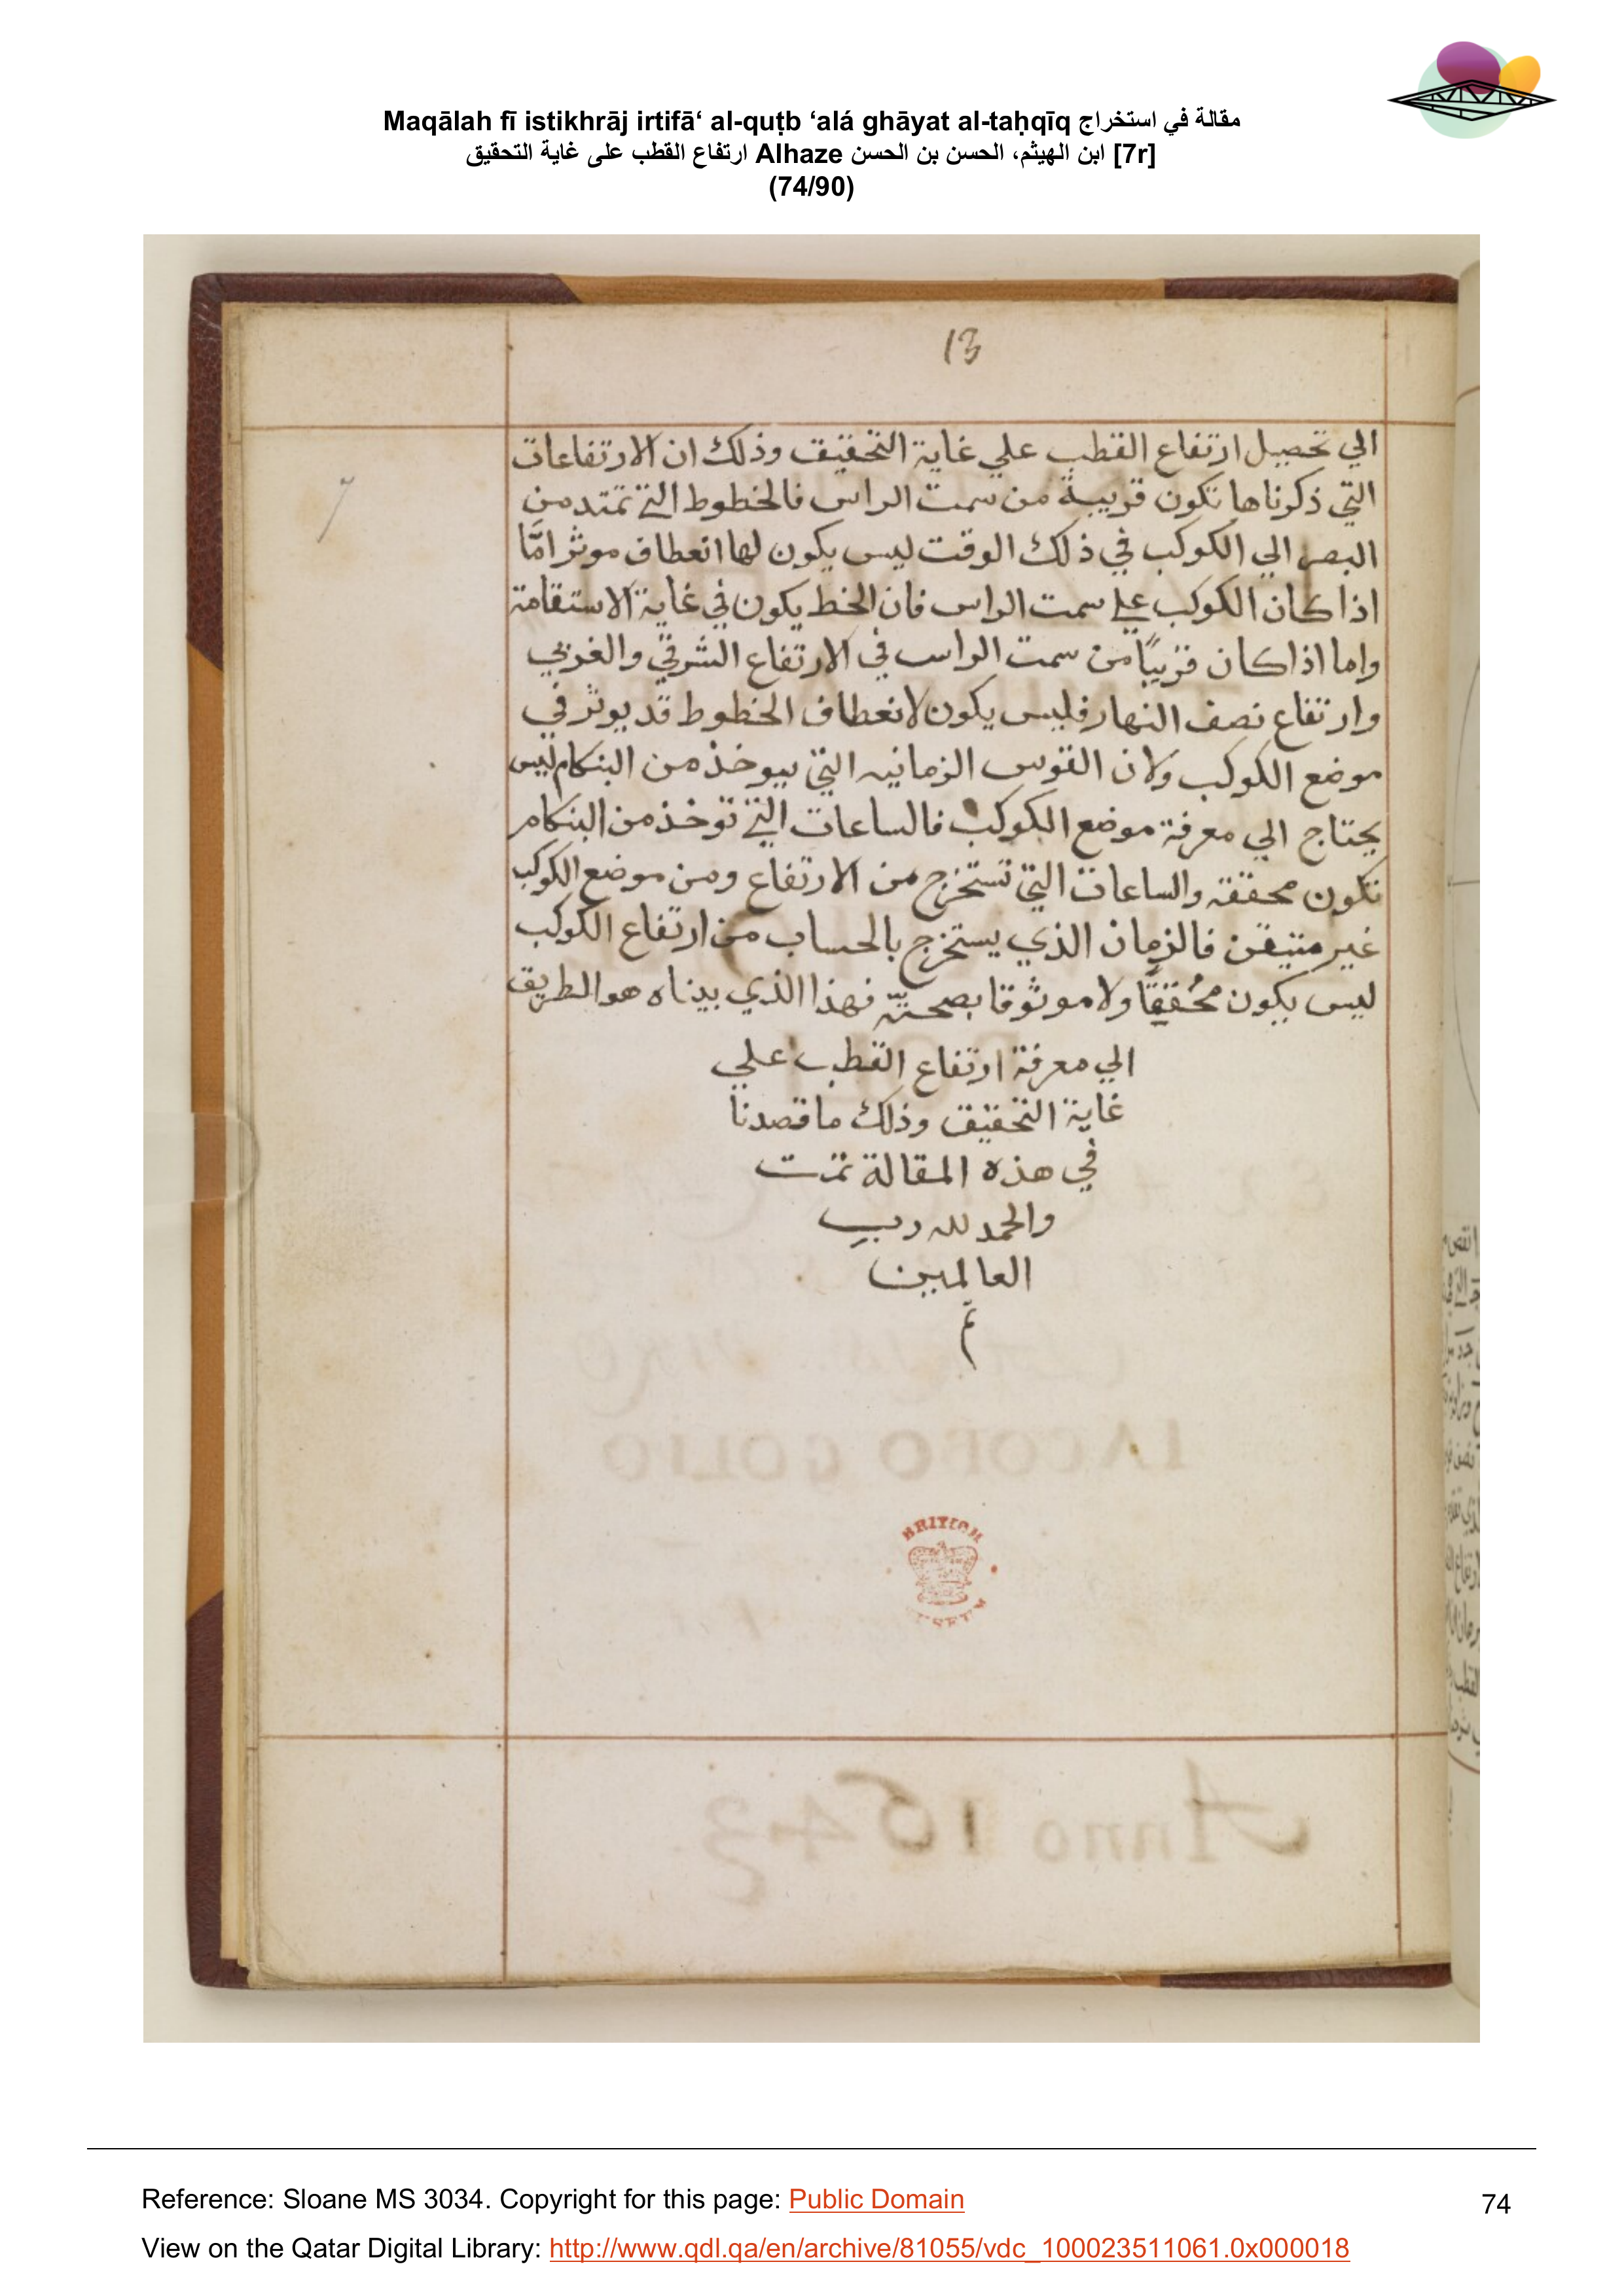 Maqālah fī istikhrāj irtifā‘ al-quṭb ‘alá ghāyat al-taḥqīq مقالة في استخراج
ارتفاع القطب على غاية التحقيق Alhaze ابن الهيثم، الحسن بن الحسن [7r]
(74/90)
13
7
الي تحصيل ارتفاع القطب علي غاية التحقيق وذلك ان الارتفاعات
التي ذكرناها تكون قريبة من سمت الراس فالخطوط التي تمتد من
البصر الي الكوكب في ذلك الوقت ليس يكون لها انعطاف موثر امّا
اذا كان الكوكب علي سمت الراس فان الخط يكون في غاية الاستقامة
واما اذا كان قريبًا من سمت الراس في الارتفاع الشرقي والغربي
وارتفاع نصف النهار فليس يكون لانعطاف الخطوط قد يوثر في
موضع الكوكب ولان القوس الزمانيه التي بيوخذ من البنكام ليس
يحتاج الي معرفة موضع الكوكب فالساعات التي توخذ من البنكام
تكون محققة والساعات التي تستخرج من الارتفاع ومن موضع الكوكب
غير متيقن فالزمان الذي يستخرج بالحساب من ارتفاع الكوكب
ليس يكون مُحققًا ولا موثوقا بصحتّه فهذا الذي بيناه هو الطريق
الي معرفة ارتفاع القطب علي
غاية التحقيق وذلك ما قصدنا
في هذه المقالة تمّت
والحمد لله رب
العالمين
تم
IACOBO GOLIO
BRITISH
MUSEUM
Anno 1643
Reference: Sloane MS 3034. Copyright for this page: Public Domain
74
View on the Qatar Digital Library: http://www.qdl.qa/en/archive/81055/vdc_100023511061.0x000018